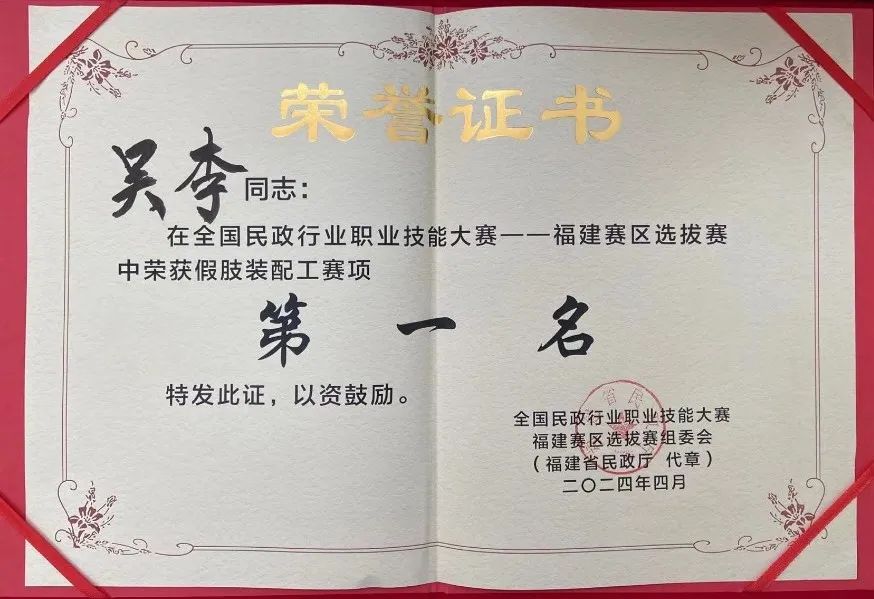 荣誉证书
吴李同志：
在全国民政行业职业技能大赛——福建赛区选拔赛
中荣获假肢装配工赛项
第一名
特发此证，以资鼓励。
全国民政行业职业技能大赛
福建赛区选拔赛组委会
（福建省民政厅 代章）
二〇二四年四月